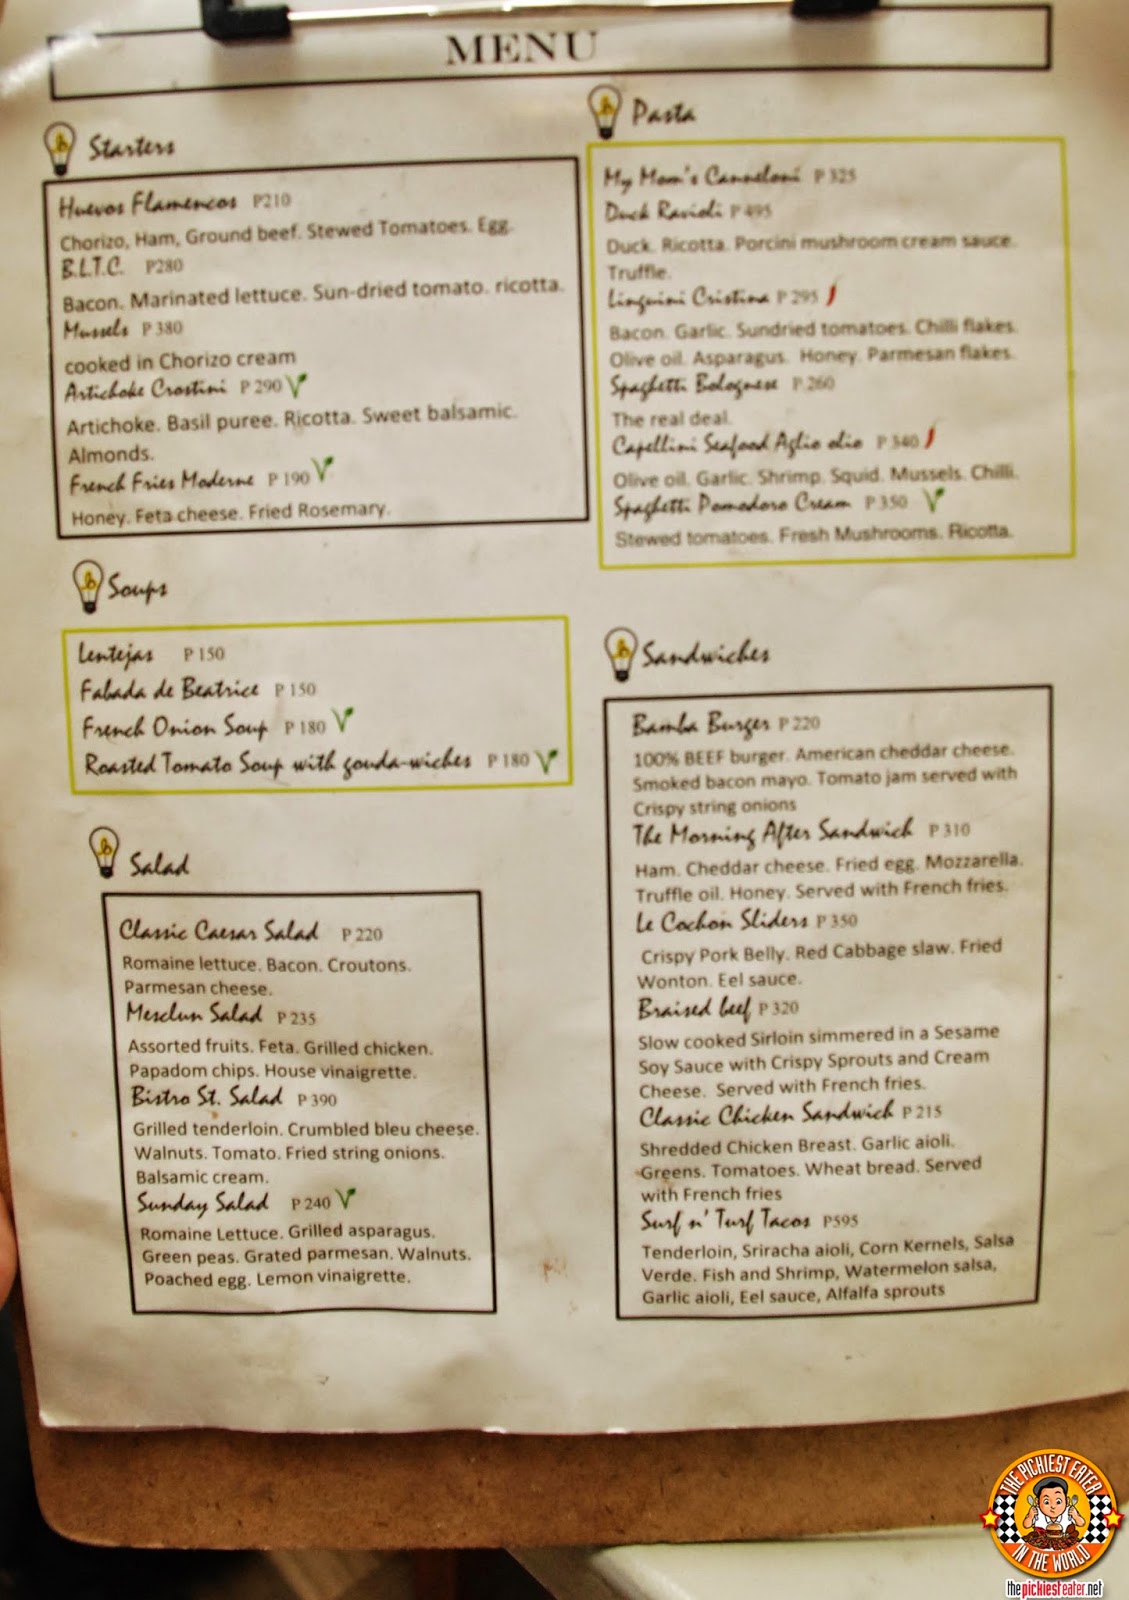 MENU
Starters
Huevos Flamencos P210
Chorizo, Ham, Ground beef. Stewed Tomatoes. Egg.
B.L.T.C. P280
Bacon. Marinated lettuce. Sun-dried tomato. ricotta.
Mussels P 380
cooked in Chorizo cream
Artichoke Crostini P 290
Artichoke. Basil puree. Ricotta. Sweet balsamic.
Almonds.
French Fries Moderne P 190
Honey. Feta cheese. Fried Rosemary.
Soups
Lentejas P 150
Fabada de Beatrice P 150
French Onion Soup P 180
Roasted Tomato Soup with gouda-wiches P 180
Salad
Classic Caesar Salad P 220
Romaine lettuce. Bacon. Croutons.
Parmesan cheese.
Mesclun Salad P 235
Assorted fruits. Feta. Grilled chicken.
Papadom chips. House vinaigrette.
Bistro St. Salad P 390
Grilled tenderloin. Crumbled bleu cheese.
Walnuts. Tomato. Fried string onions.
Balsamic cream.
Sunday Salad P 240
Romaine Lettuce. Grilled asparagus.
Green peas. Grated parmesan. Walnuts.
Poached egg. Lemon vinaigrette.
Pasta
My Mom's Canneloni P 325
Duck Ravioli P 495
Duck. Ricotta. Porcini mushroom cream sauce.
Truffle.
Linguini Cristina P 295
Bacon. Garlic. Sundried tomatoes. Chilli flakes.
Olive oil. Asparagus. Honey. Parmesan flakes.
Spaghetti Bolognese P 260
The real deal.
Capellini Seafood Aglio olio P 340
Olive oil. Garlic. Shrimp. Squid. Mussels. Chilli.
Spaghetti Pomodoro Cream P 350
Stewed tomatoes. Fresh Mushrooms. Ricotta.
Sandwiches
Bamba Burger P 220
100% BEEF burger. American cheddar cheese.
Smoked bacon mayo. Tomato jam served with
Crispy string onions
The Morning After Sandwich P 310
Ham. Cheddar cheese. Fried egg. Mozzarella.
Truffle oil. Honey. Served with French fries.
Le Cochon Sliders P 350
Crispy Pork Belly. Red Cabbage slaw. Fried
Wonton. Eel sauce.
Braised beef P 320
Slow cooked Sirloin simmered in a Sesame
Soy Sauce with Crispy Sprouts and Cream
Cheese. Served with French fries.
Classic Chicken Sandwich P 215
Shredded Chicken Breast. Garlic aioli.
Greens. Tomatoes. Wheat bread. Served
with French fries
Surf n' Turf Tacos P595
Tenderloin, Sriracha aioli, Corn Kernels, Salsa
Verde. Fish and Shrimp, Watermelon salsa,
Garlic aioli, Eel sauce, Alfalfa sprouts
THE PICKIEST EATER
IN THE WORLD
thepickiesteater.net